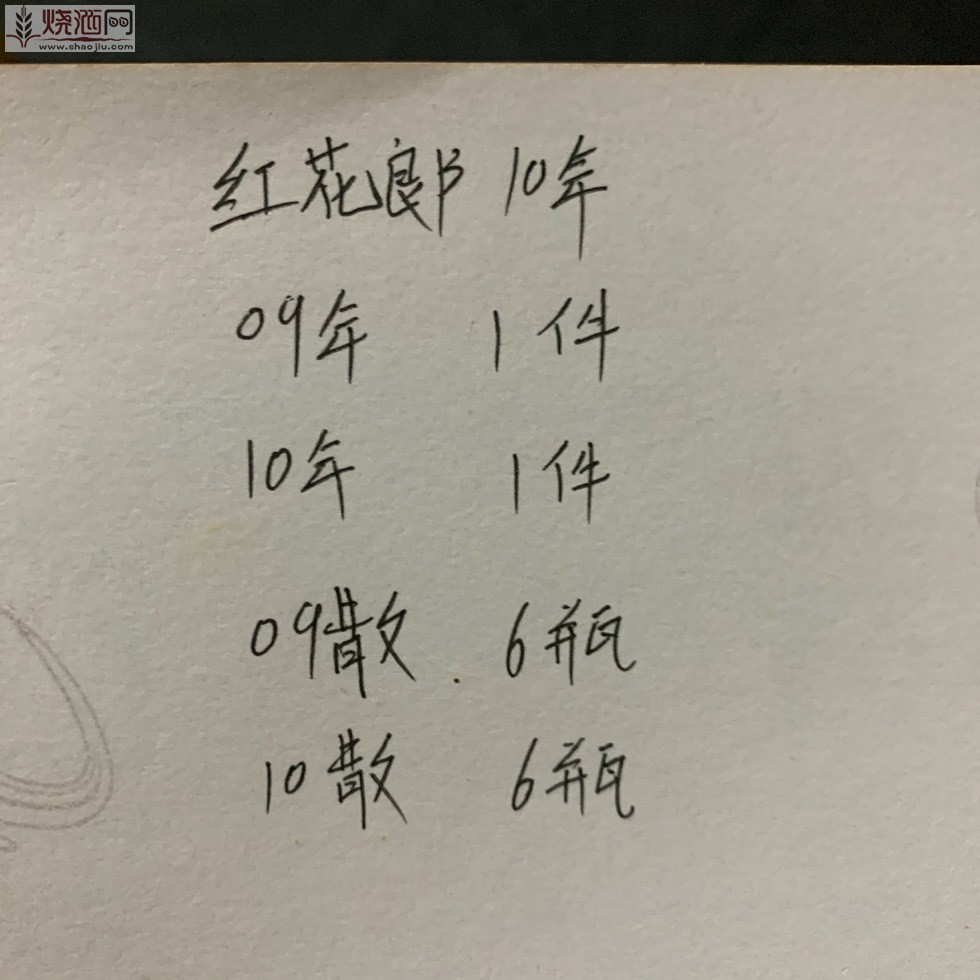 烧酒网
www.shaojiu.com
红花郎 10年
09年 1件
10年 1件
09散. 6瓶
10散 6瓶